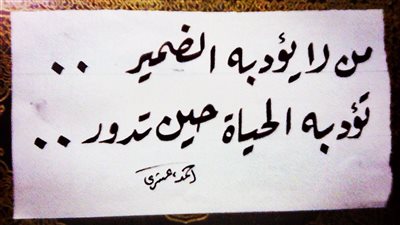 من لا يؤدبه الضمير ..
تؤدبه الحياة حين تدور ..